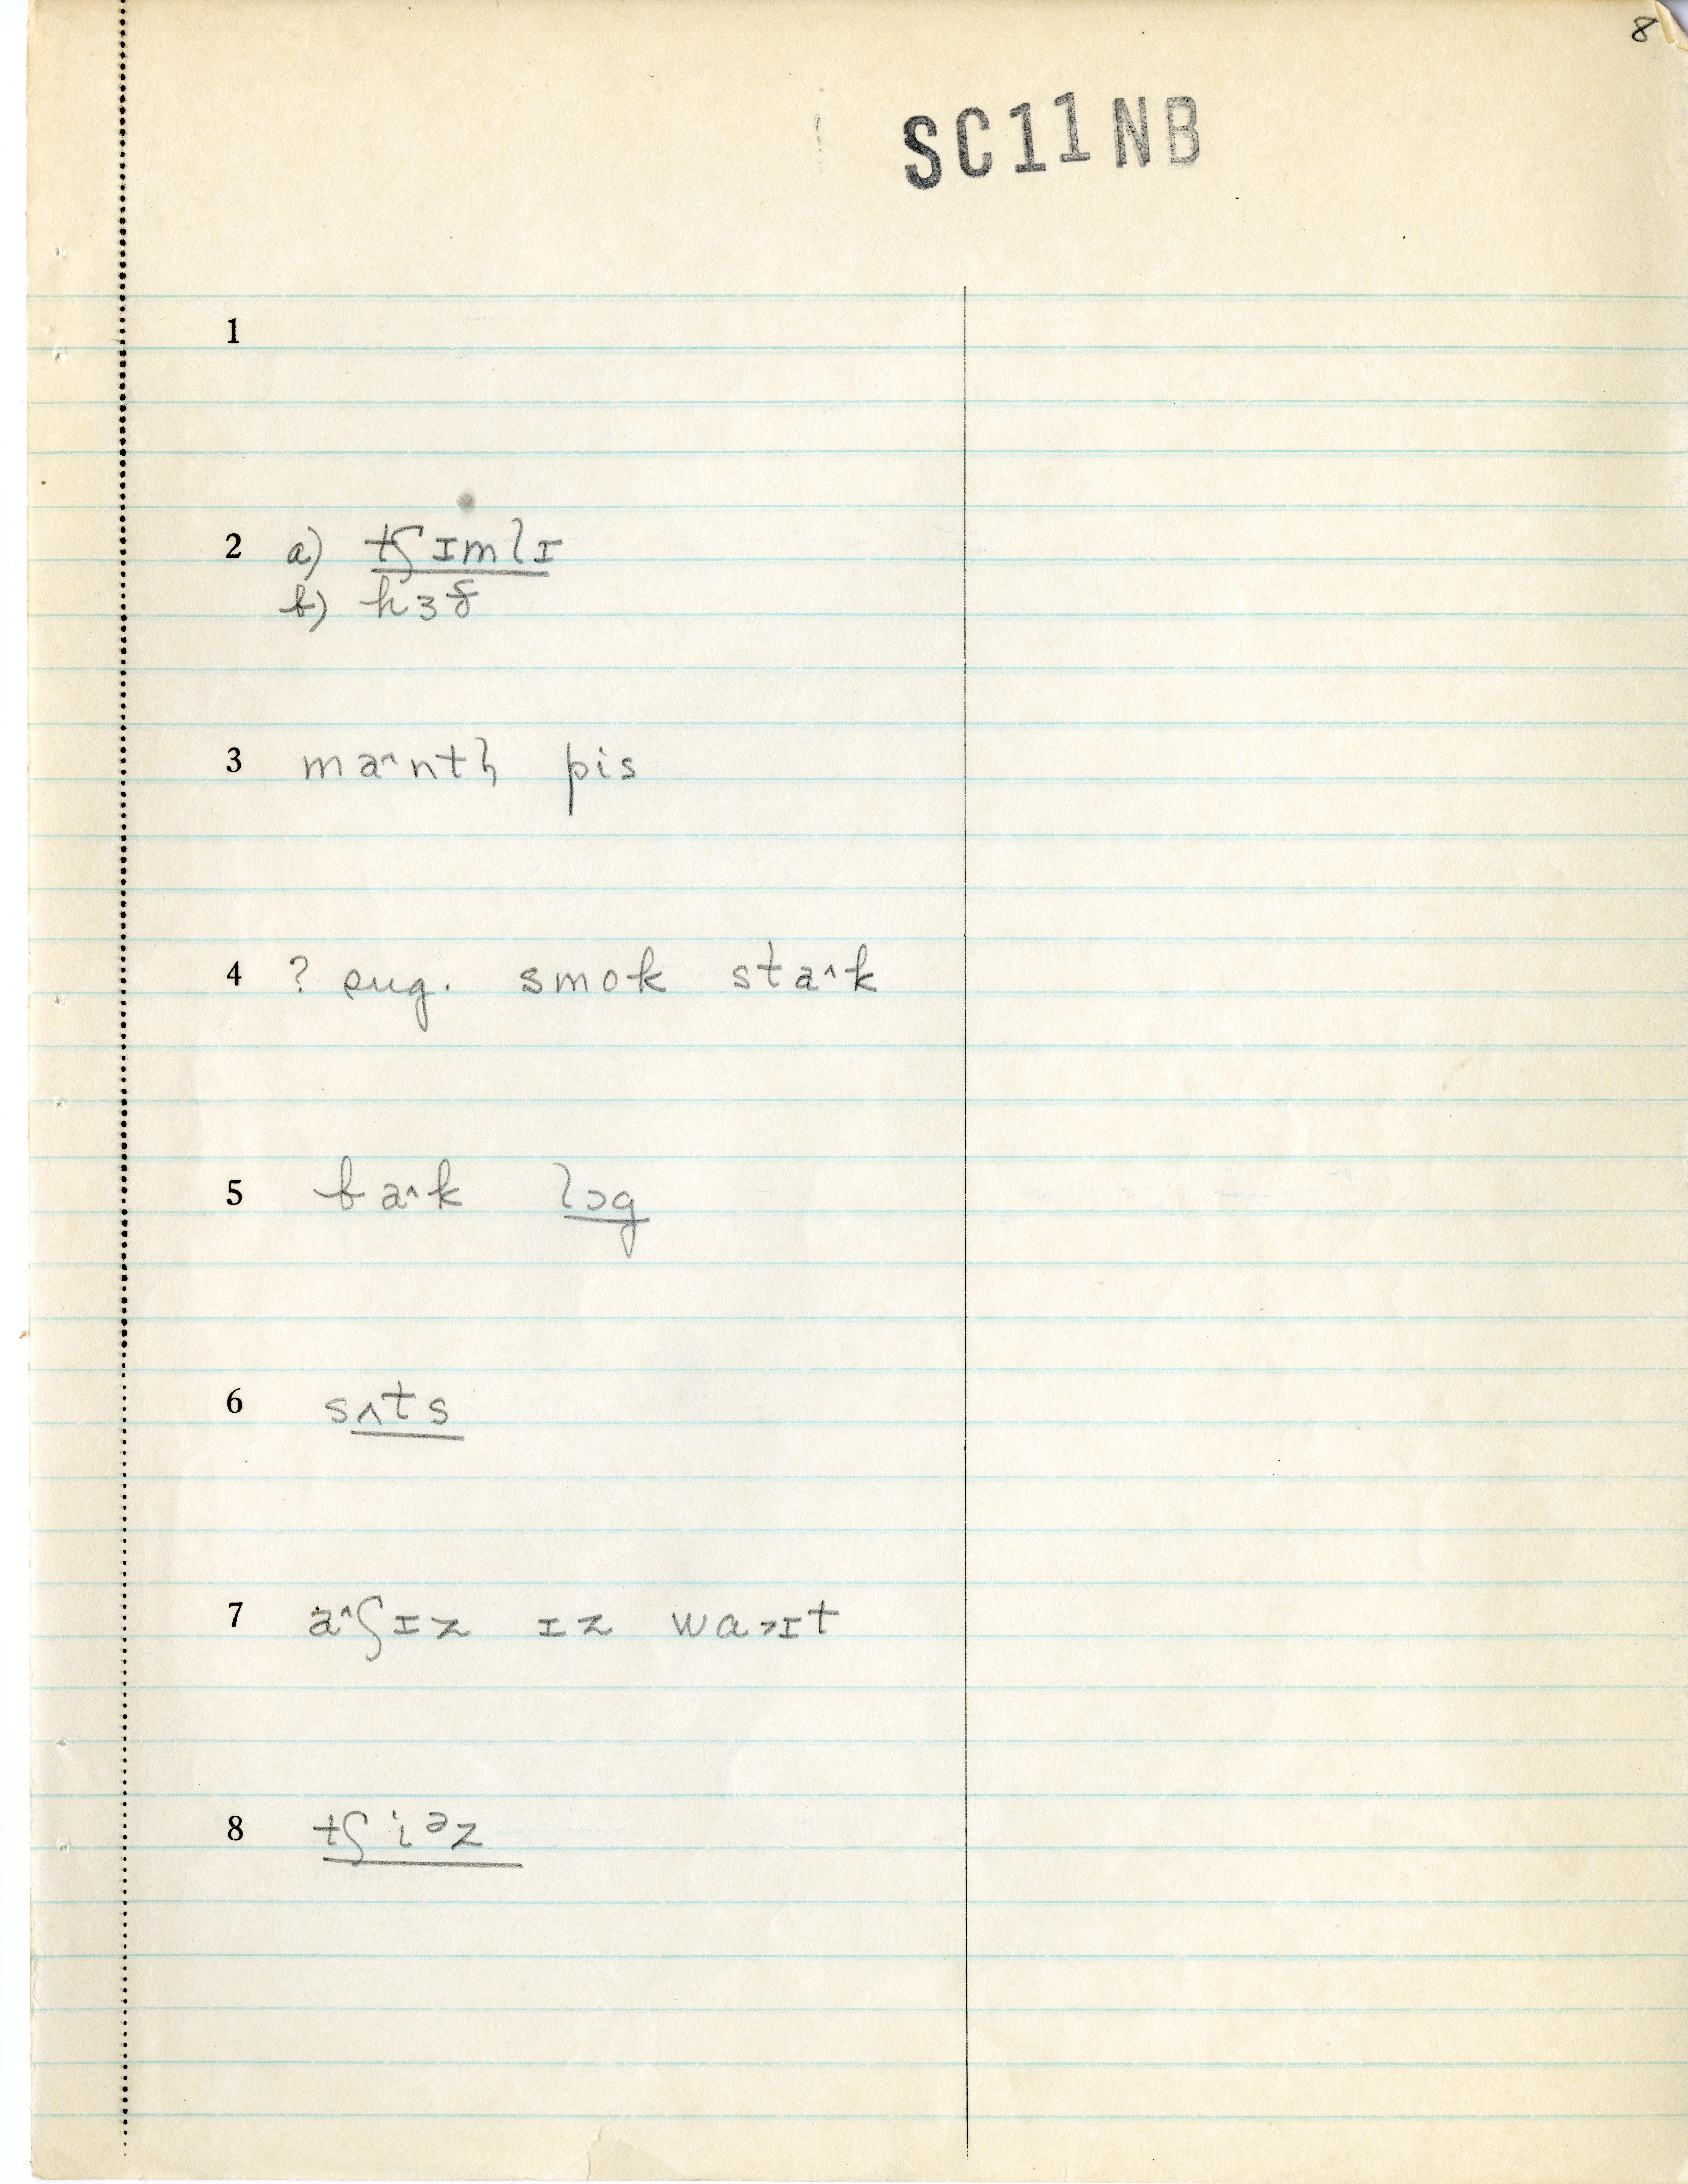 8
SC11NB
1
2 a) tʃɪmlɪ
b) hɜθ
3 ma^ntl̩ pis
4 ? eug. smok sta^k
5 ba^k lɔg
6 sʌts
7 a^ʃɪz ɪz waɪt
8 tʃiəz